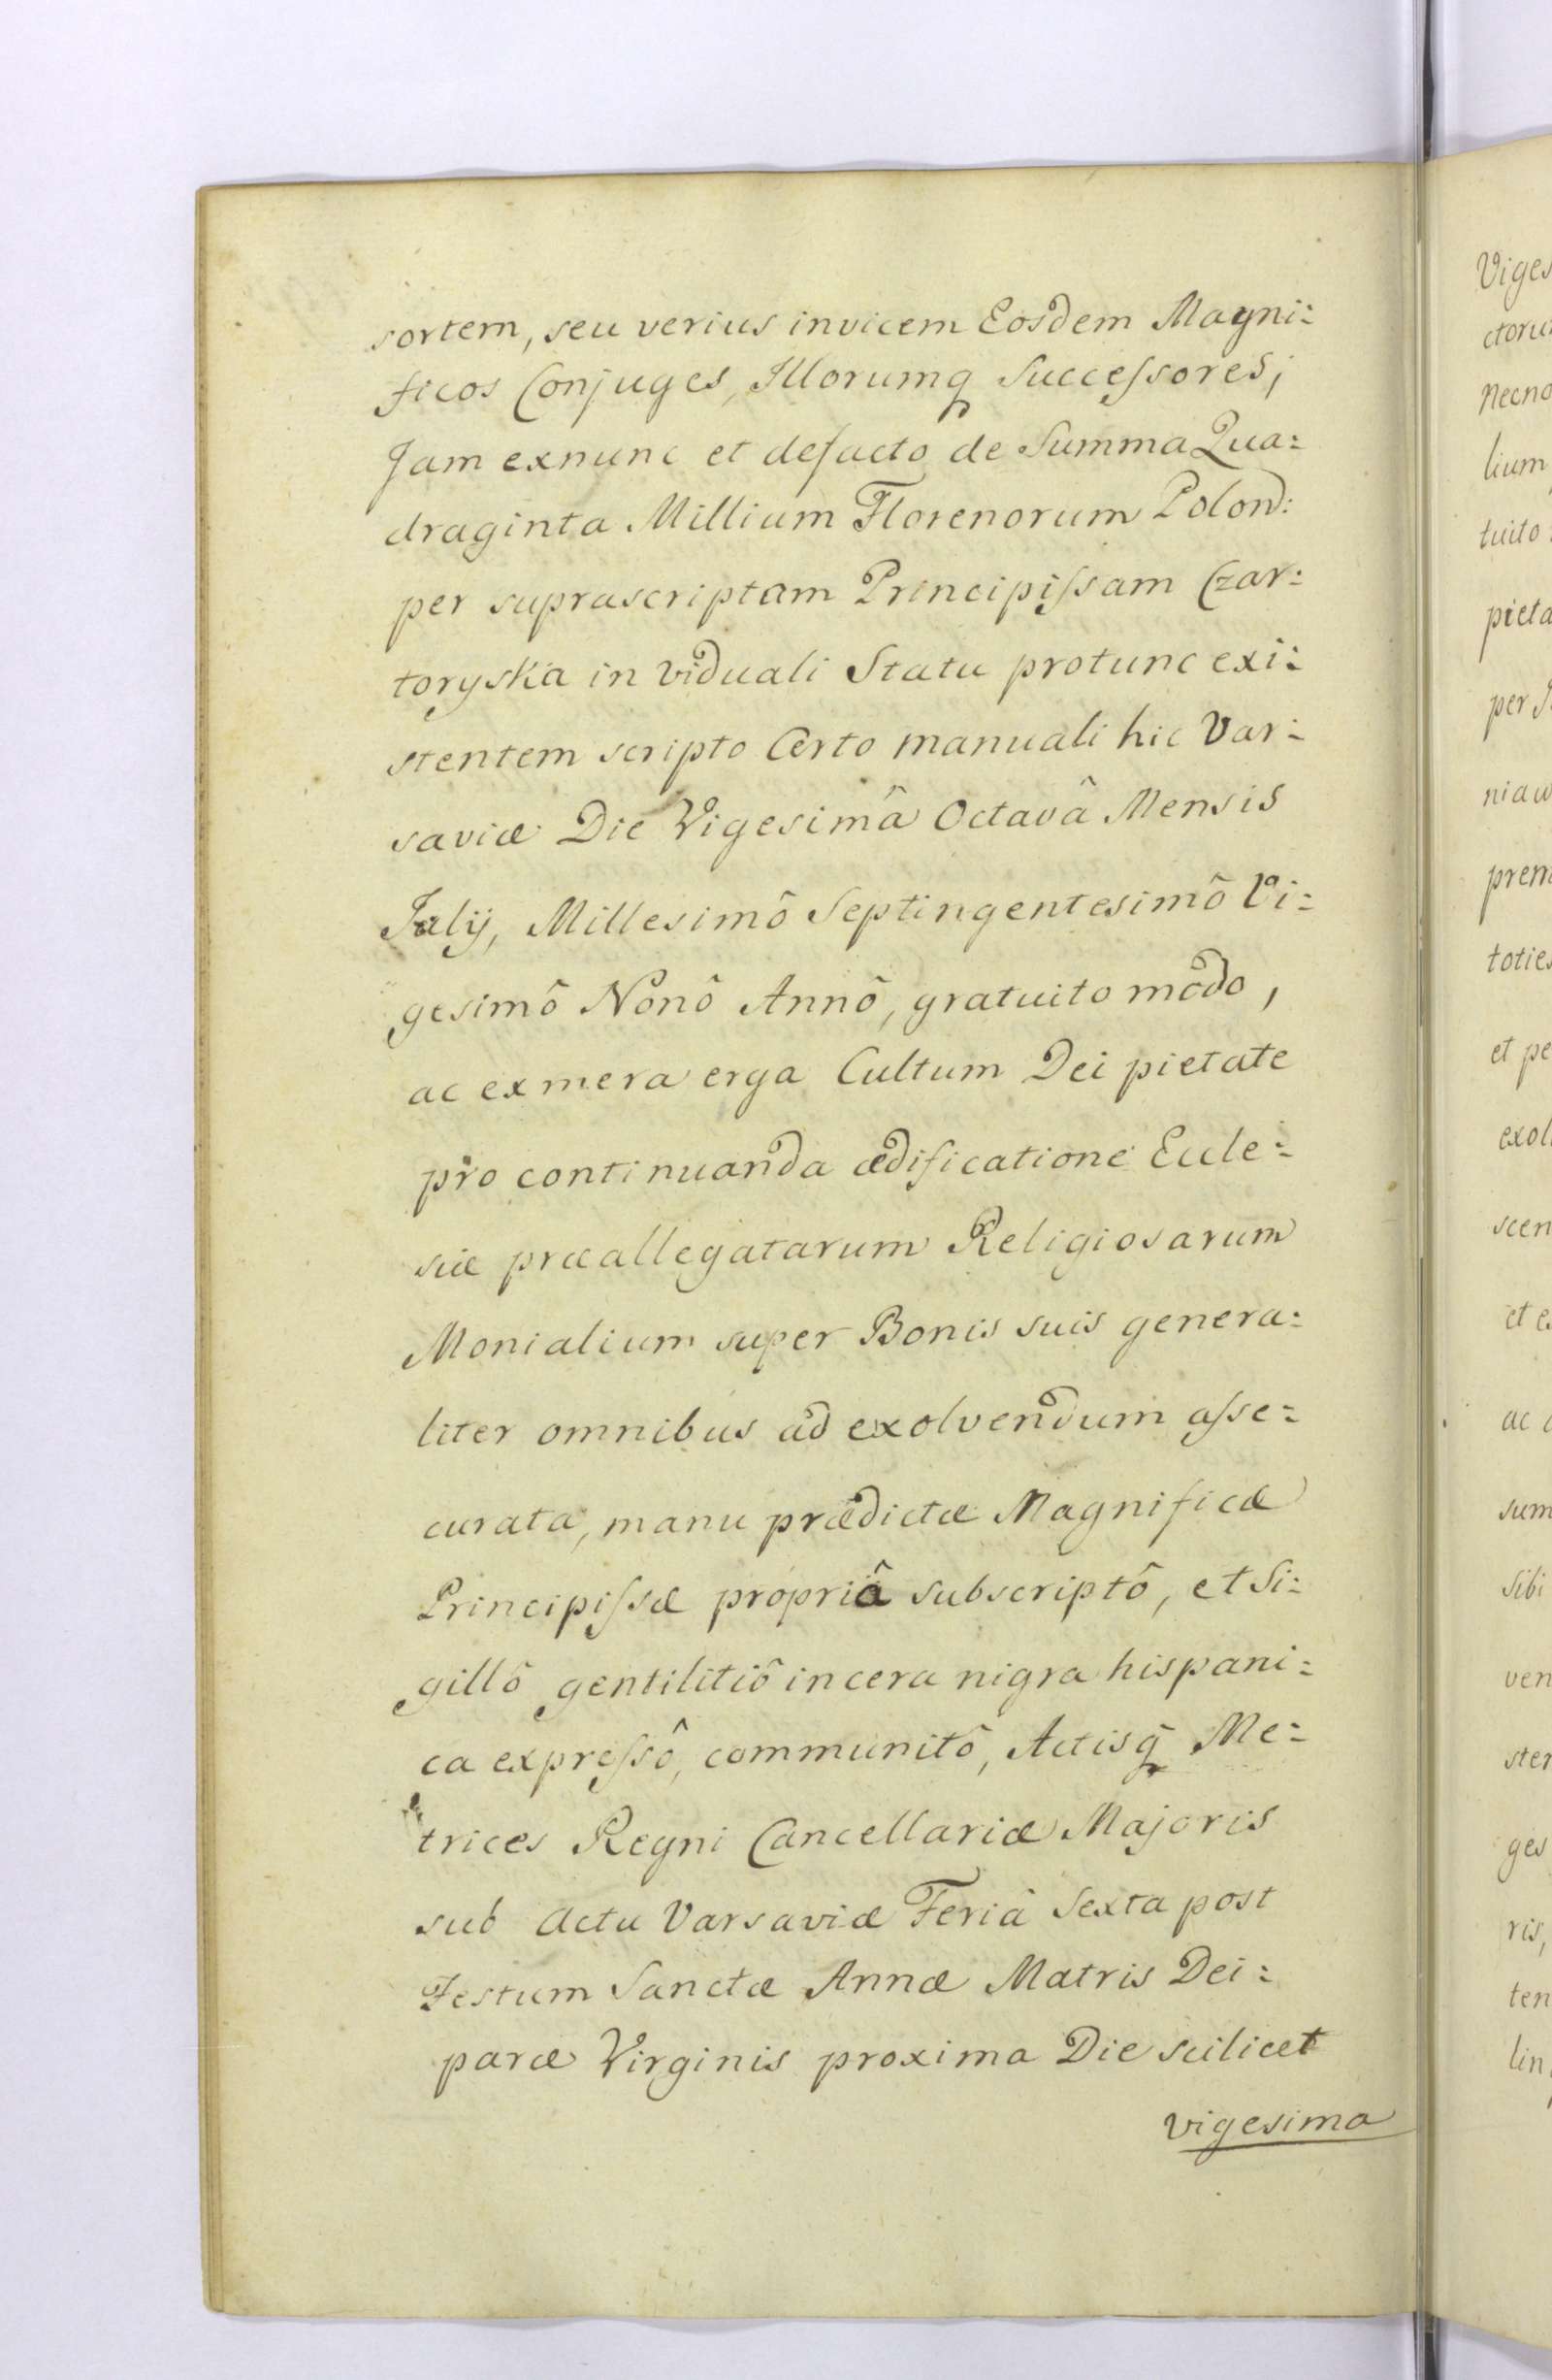 sortem, seu verius invicem Eosdem Magni:
ficos Conjuges, Illorumq Successores,
Jam exnunc et defacto de Summa Qua:
draginta Millium Florenorum Polon:
per suprascriptam Principissam Czar:
toryska in viduali Statu protunc exi:
stentem scripto Certo manuali hic Var:
saviæ Die Vigesimâ Octavâ Mensis
Julij, Millesimô Septingentesimô Vi:
gesimô Nonô Annô, gratuito modo,
ac ex mera erga Cultum Dei pietate
pro continuanda ædificatione Eccle:
siæ præallegatarum Religiosarum
Monialium super Bonis suis genera:
liter omnibus ad exolvendum asse:
curata, manu prædictæ Magnificæ
Principissæ propriâ subscriptô, et Si:
gillô gentilitiô in cera nigra hispani:
ca expressô, communitô, Actisq Me:
trices Regni Cancellariæ Majoris
sub Actu Varsaviæ Feriâ Sexta post
Festum Sanctæ Annæ Matris Dei:
paræ Virginis proxima Die scilicet
vigesima
Viges
ctoru
necno
lium
tuito
pieta
per
niaw
prem
toties
et pe
exol
scen
et e
ac
sum
Sibi
ven
ster
ges
ris,
ten
lin